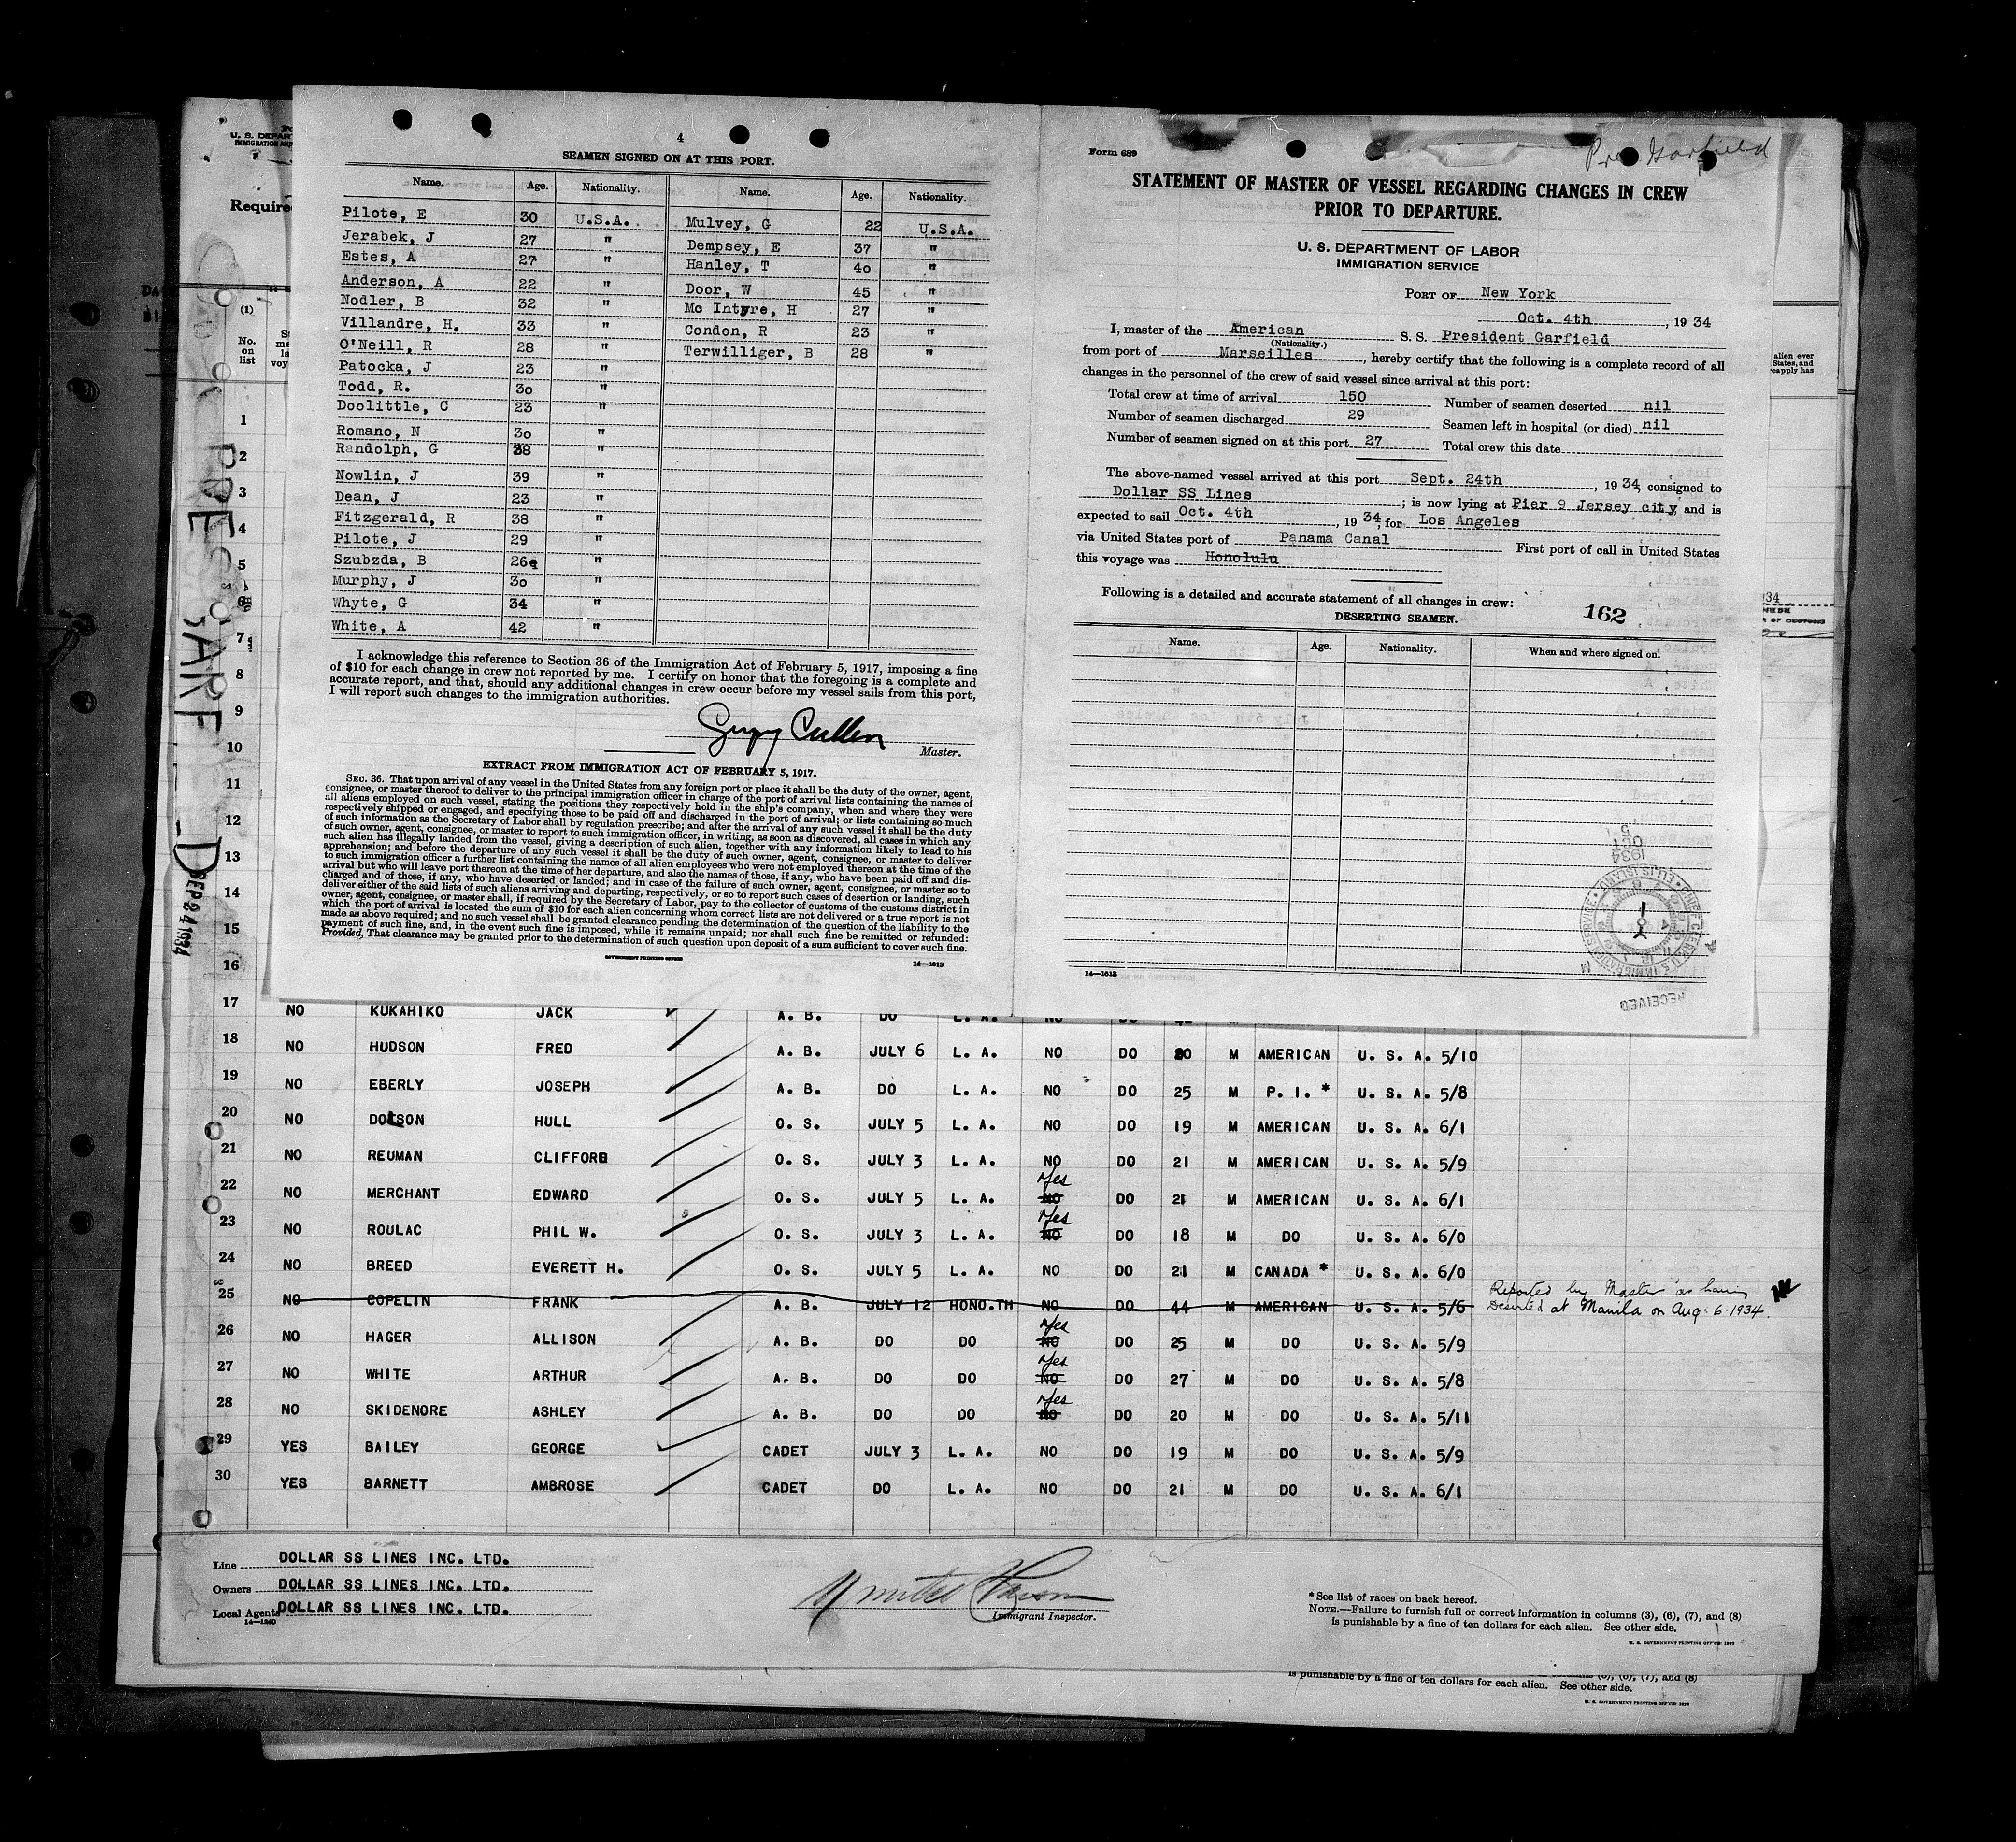 4
SEAMEN SIGNED ON AT THIS PORT.
Name. Age. Nationality. Name. Age. Nationality.
Pilote, E 30 U.S.A. Mulvey, G 22 U.S.A.
Jerabek, J 27 " Dempsey, E 37 "
Estes, A 27 " Hanley, T 40 "
Anderson, A 22 " Door, W 45 "
Nodler, B 32 " Mc Intyre, H 27 "
Villandre, H. 33 " Condon, R 23 "
O'Neill, R 28 " Terwilliger, B 28 "
Patocka, J 23 "
Todd, R. 30 "
Doolittle, C 23 "
Romano, N 30 "
Randolph, G 38 "
Nowlin, J 39 "
Dean, J 23 "
Fitzgerald, R 38 "
Pilote, J 29 "
Szubzda, B 26 "
Murphy, J 30 "
Whyte, G 34 "
White, A 42 "
I acknowledge this reference to Section 36 of the Immigration Act of February 5, 1917, imposing a fine
of $10 for each change in crew not reported by me. I certify on honor that the foregoing is a complete and
accurate report, and that, should any additional changes in crew occur before my vessel sails from this port,
I will report such changes to the immigration authorities.
Cullen
Master.
EXTRACT FROM IMMIGRATION ACT OF FEBRUARY 5, 1917.
SEC. 36. That upon arrival of any vessel in the United States from any foreign port or place it shall be the duty of the owner, agent,
consignee, or master thereof to deliver to the principal immigration officer in charge of the port of arrival lists containing the names of
all aliens employed on such vessel, stating the positions they respectively hold in the ship's company, when and where they were
respectively shipped or engaged, and specifying those to be paid off and discharged in the port of arrival; or lists containing so much
of such information as the Secretary of Labor shall by regulation prescribe; and after the arrival of any such vessel it shall be the duty
of such owner, agent, consignee, or master to report to such immigration officer, in writing, as soon as discovered, all cases in which any
such alien has illegally landed from the vessel, giving a description of such alien, together with any information likely to lead to his
apprehension; and before the departure of any such vessel it shall be the duty of such owner, agent, consignee, or master to deliver
to such immigration officer a further list containing the names of all alien employees who were not employed thereon at the time of the
arrival but who will leave port thereon at the time of her departure, and also the names of those, if any, who have been paid off and dis-
charged and of those, if any, who have deserted or landed; and in case of the failure of such owner, agent, consignee, or master so to
deliver either of the said lists of such aliens arriving and departing, respectively, or so to report such cases of desertion or landing, such
owner, agent, consignee, or master shall, if required by the Secretary of Labor, pay to the collector of customs of the customs district in
which the port of arrival is located the sum of $10 for each alien concerning whom correct lists are not delivered or a true report is not
made as above required; and no such vessel shall be granted clearance pending the determination of the question of the liability to the
payment of such fine, and, in the event such fine is imposed, while it remains unpaid; nor shall such fine be remitted or refunded:
Provided, That clearance may be granted prior to the determination of such question upon deposit of a sum sufficient to cover such fine.
GOVERNMENT PRINTING OFFICE 14—1613
Form 689
Pres Garfield
STATEMENT OF MASTER OF VESSEL REGARDING CHANGES IN CREW
PRIOR TO DEPARTURE.
U. S. DEPARTMENT OF LABOR
IMMIGRATION SERVICE
PORT OF New York
Oct. 4th, 1934
I, master of the American S. S. President Garfield
(Nationality.)
from port of Marseilles, hereby certify that the following is a complete record of all
changes in the personnel of the crew of said vessel since arrival at this port:
Total crew at time of arrival 150 Number of seamen deserted nil
Number of seamen discharged 29 Seamen left in hospital (or died) nil
Number of seamen signed on at this port 27 Total crew this date
The above-named vessel arrived at this port Sept. 24th, 1934, consigned to
Dollar SS Lines; is now lying at Pier 9 Jersey city, and is
expected to sail Oct. 4th, 1934, for Los Angeles
via United States port of Panama Canal First port of call in United States
this voyage was Honolulu
Following is a detailed and accurate statement of all changes in crew:
162
DESERTING SEAMEN.
Name. Age. Nationality. When and where signed on.
1934 OCT 5
RECEIVED
14—1613
U. S. DEPAR
Require
(1)
No. on list
alien ever
States, and
reapply has
PRES GARFIELD
SEP 24 1934
1
2
3
4
5
6
7
8
9
10
11
12
13
14
15
16
17 NO KUKAHIKO JACK A. B. DO L. A. NO DO
18 NO HUDSON FRED A. B. JULY 6 L. A. NO DO 20 M AMERICAN U. S. A. 5/10
19 NO EBERLY JOSEPH A. B. DO L. A. NO DO 25 M P. I. * U. S. A. 5/8
20 NO DOTSON HULL O. S. JULY 5 L. A. NO DO 19 M AMERICAN U. S. A. 6/1
21 NO REUMAN CLIFFORD O. S. JULY 3 L. A. NO DO 21 M AMERICAN U. S. A. 5/9
22 NO MERCHANT EDWARD O. S. JULY 5 L. A. NO Yes DO 21 M AMERICAN U. S. A. 6/1
23 NO ROULAC PHIL W. O. S. JULY 3 L. A. NO Yes DO 18 M DO U. S. A. 6/0
24 NO BREED EVERETT H. O. S. JULY 5 L. A. NO DO 21 M CANADA * U. S. A. 6/0
25 NO COPELIN FRANK A. B. JULY 12 HONO.TH NO DO 44 M AMERICAN U. S. A. 5/6 Reported by Master as having
Deserted at Manila on Aug. 6. 1934.
26 NO HAGER ALLISON A. B. DO DO NO Yes DO 25 M DO U. S. A. 5/9
27 NO WHITE ARTHUR A. B. DO DO NO Yes DO 27 M DO U. S. A. 5/8
28 NO SKIDENORE ASHLEY A. B. DO DO NO Yes DO 20 M DO U. S. A. 5/11
29 YES BAILEY GEORGE CADET JULY 3 L. A. NO DO 19 M DO U. S. A. 5/9
30 YES BARNETT AMBROSE CADET DO L. A. NO DO 21 M DO U. S. A. 6/1
Line DOLLAR SS LINES INC. LTD.
Owners DOLLAR SS LINES INC. LTD.
Local Agents DOLLAR SS LINES INC. LTD.
14—1240
Immigrant Inspector.
*See list of races on back hereof.
NOTE.—Failure to furnish full or correct information in columns (3), (6), (7), and (8)
is punishable by a fine of ten dollars for each alien. See other side.
U. S. GOVERNMENT PRINTING OFFICE
is punishable by a fine of ten dollars for each alien. See other side.
U. S. GOVERNMENT PRINTING OFFICE